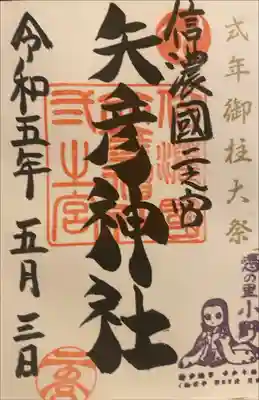 式年御柱大祭
信濃國二之宮
矢彦神社
令和五年 五月三日
憑の里 小野